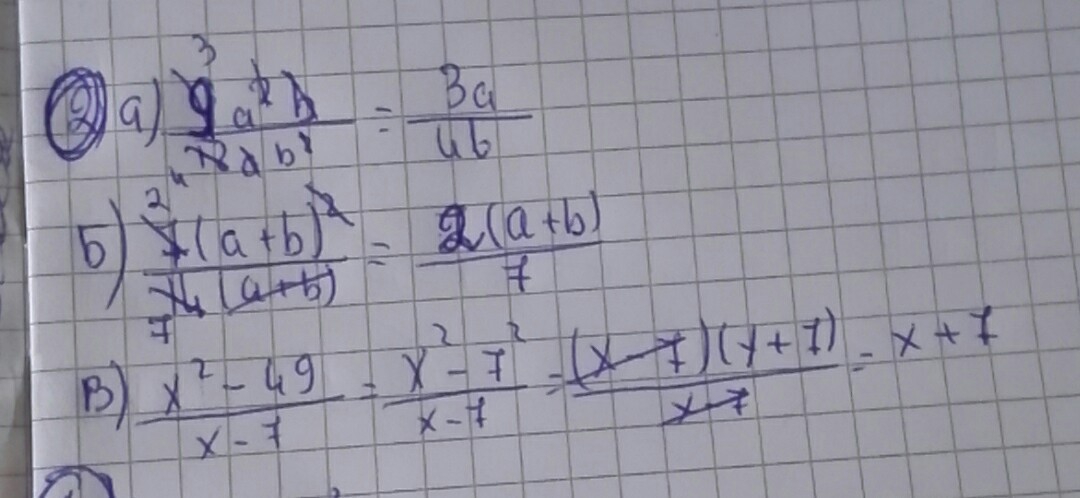 ② а) 9a²b/12ab² = 3a/4b
Б) 4(a+b)²/14(a+b) = 2(a+b)/7
В) x² - 49/x - 7 = x² - 7²/x - 7 = (x-7)(x+7)/x-7 = x + 7